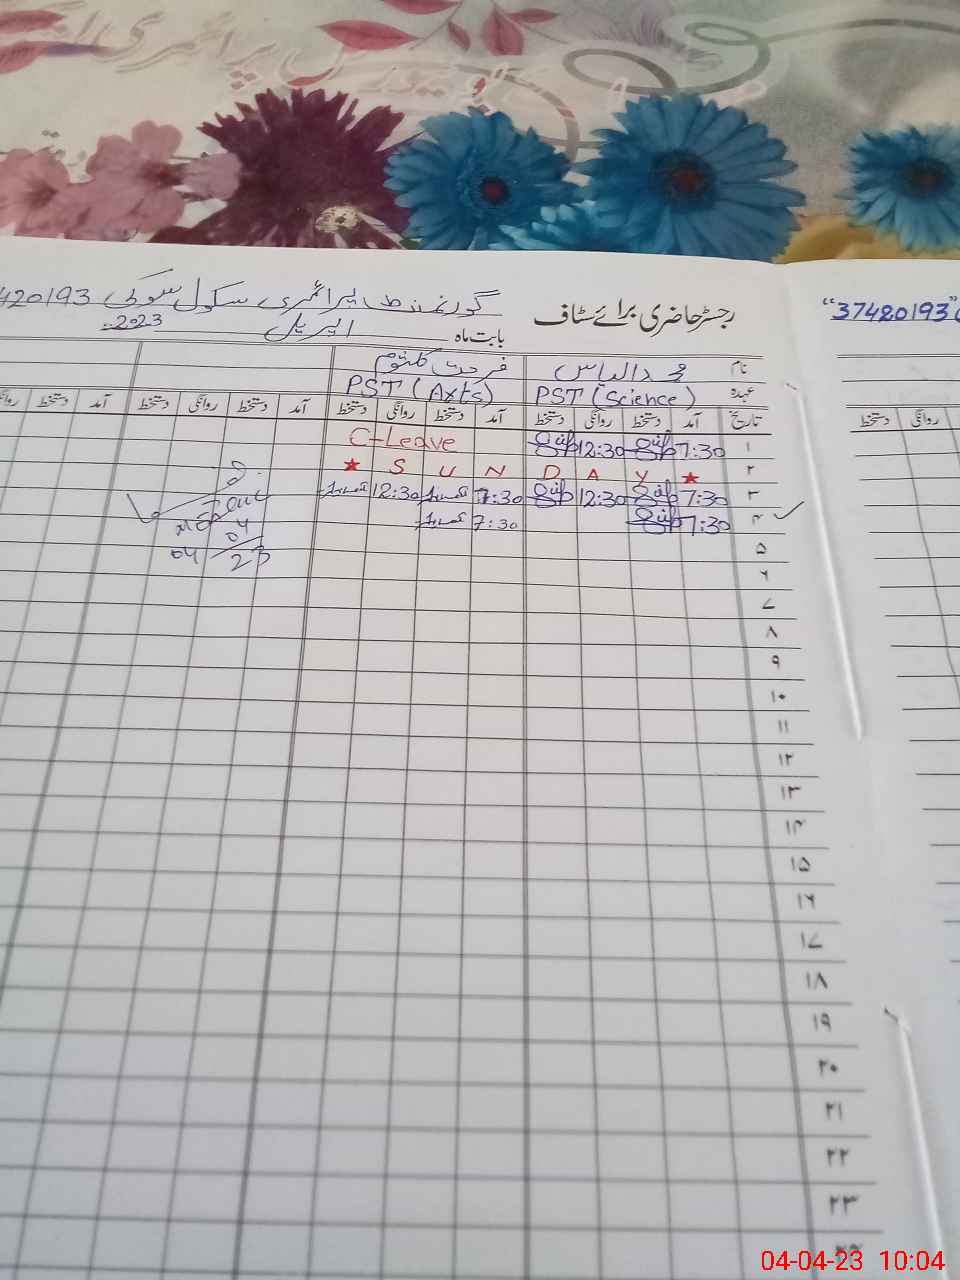 رجسٹر حاضری برائے سٹاف
گورنمنٹ پرائمری سکول سوکی 37420193
بابت ماہ اپریل 2023
"37420193"
نام محمد الیاس فرحت کلثوم
عہدہ PST (Science) PST (Arts)
تاریخ آمد دستخط روانگی دستخط آمد دستخط روانگی دستخط آمد دستخط روانگی دستخط آمد دستخط روانگی
روانگی دستخط
۱ 7:30 12:30 C-Leave
۲ ★ S U N D A Y ★
۳ 7:30 12:30 7:30 12:30
۴ 7:30 7:30
04
04 23
۵
۶
۷
۸
۹
۱۰
۱۱
۱۲
۱۳
۱۴
۱۵
۱۶
۱۷
۱۸
۱۹
۲۰
۲۱
۲۲
۲۳
۲۴
04-04-23 10:04